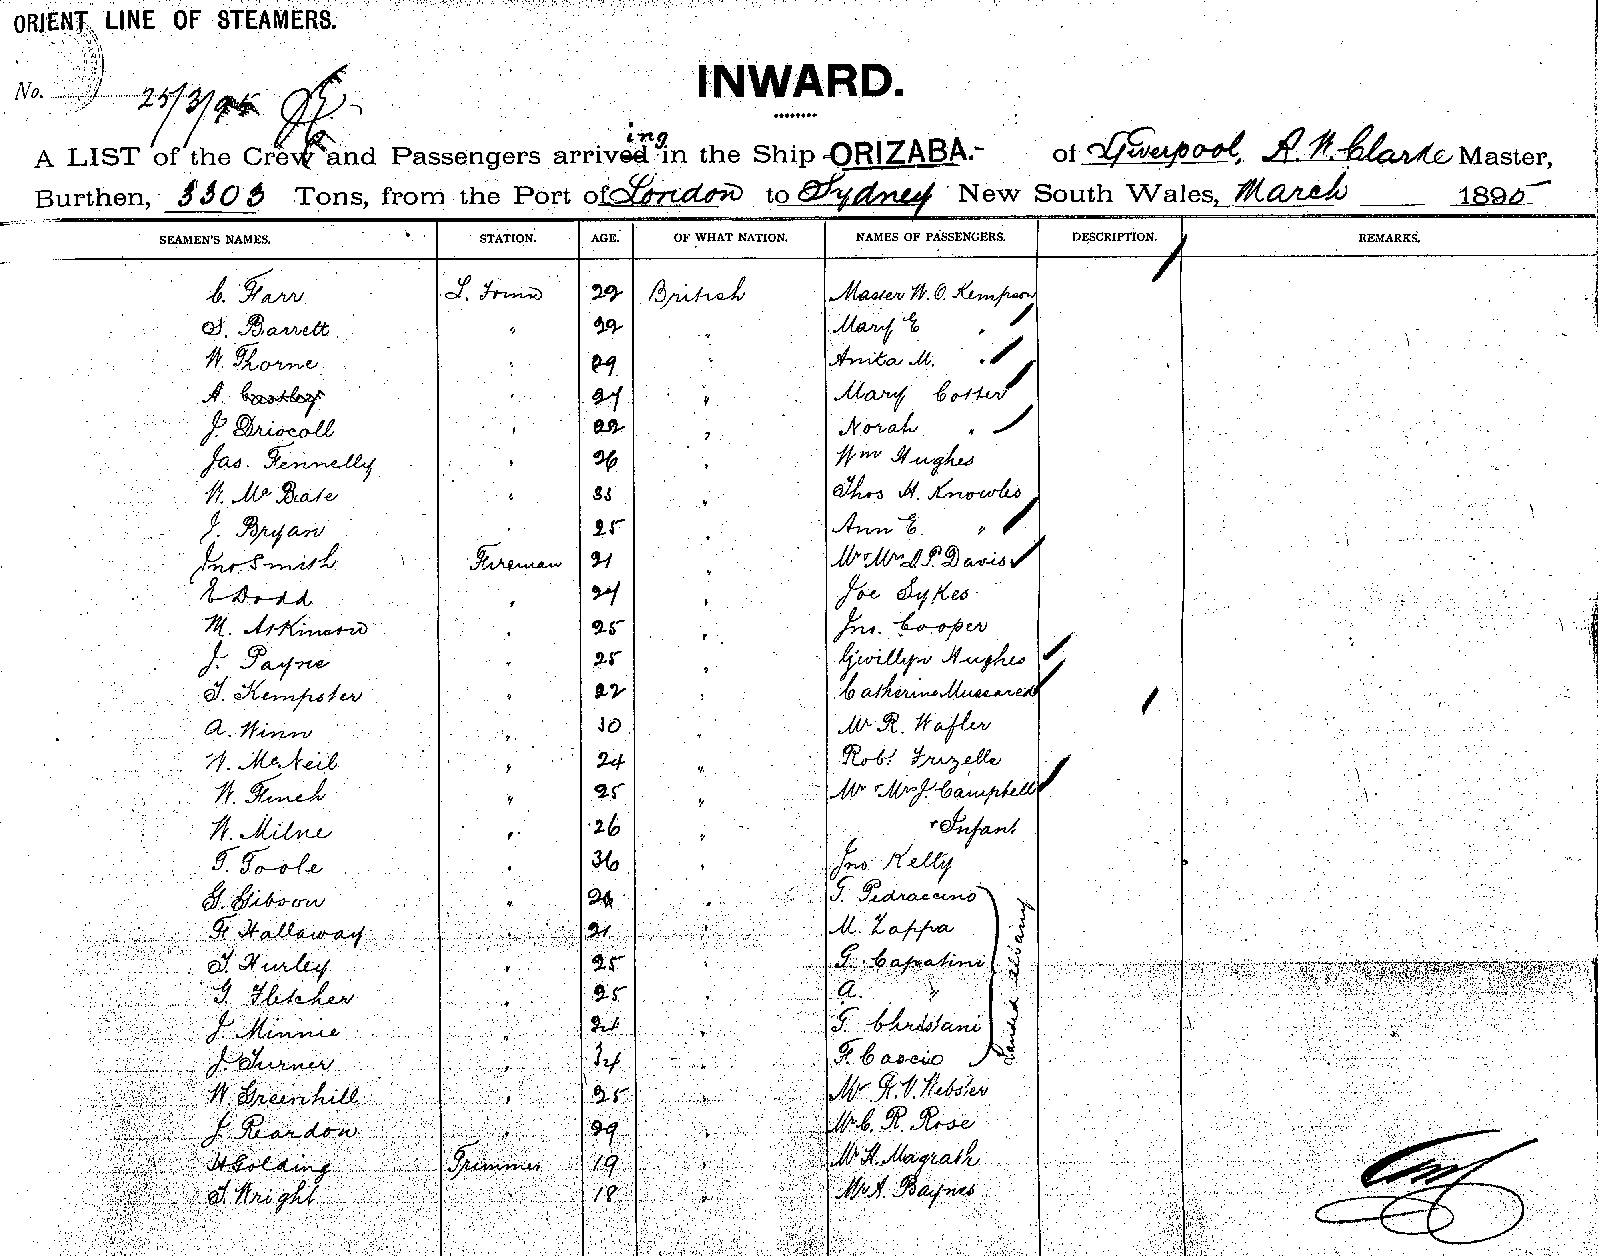 ORIENT LINE OF STEAMERS.
No.
25/3/95
INWARD.
ing
A LIST of the Crew and Passengers arrived in the Ship ORIZABA.- of Liverpool, A. N. Clarke Master,
Burthen, 3303 Tons, from the Port of London to Sydney New South Wales, March 1895
SEAMEN'S NAMES. STATION. AGE. OF WHAT NATION. NAMES OF PASSENGERS. DESCRIPTION. REMARKS.
C. Farr 29 British Master W. O. Kempson
S. Barrett " 22 " Mary E "
W. Thorne " 29 " Anita M. "
A. 24 " Mary Cotter
J. Driscoll " 22 " Norah "
Jas. Fennelly " 26 " Wm Hughes
W. McBate " 33 " Thos H. Knowles
J. Bryan " 25 " Ann E "
Jno. Smith Fireman 21 " Mr Mrs D. P. Davis
E Dodd " 24 " Joe Sykes
M. Atkinson " 25 " Jno. Cooper
J. Payne " 25 " Gwillyn Hughes
T. Kempster " 22 " Catherine
A. Winn " 30 " Mr R. Wafler
W. McNeil " 24 " Robt Frizelle
W. Finch " 25 " Mr Mrs J. Campbell
W. Milne " 26 " + Infant
T. Toole " 36 " Jno. Kelly
G. Gibson " " G. Pedraccino
F. Hallaway " 21 " M. Zappa
T. Hurley " 25 " G. Capatini
G. Fletcher " 25 " A. "
J. Minnie " 24 " G. Christani
J. Turner " 34 " F. Cascio
Landed Albany
W. Greenhill " 25 " Mr H. V. Webster
J. Reardon " 29 " Mr C. R. Rose
H Golding Trimmer 19 " Mr H. Magrath
T. Wright 18 " Mr A. Baynes